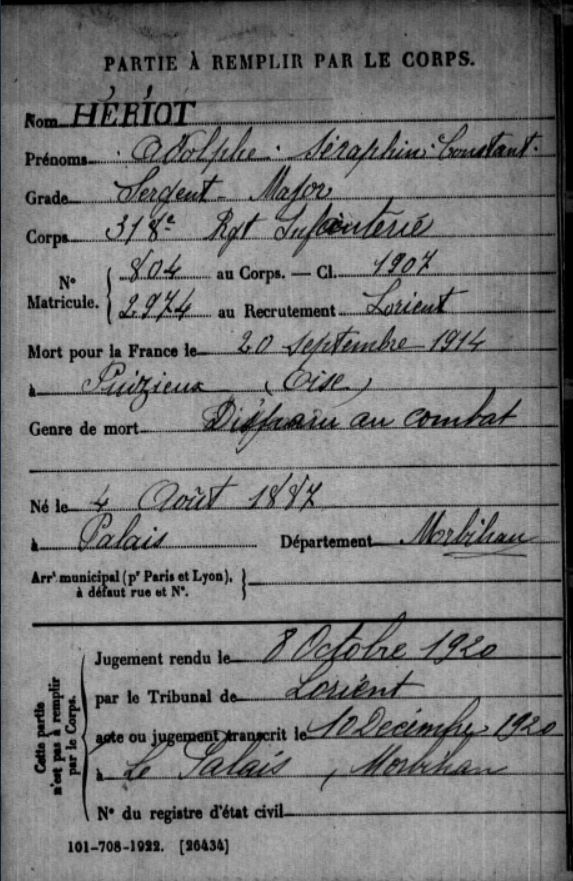 PARTIE À REMPLIR PAR LE CORPS.
Nom HÉRIOT
Prénoms Adolphe Séraphin Constant
Grade Sergent-Major
Corps 318e Rgt Infanterie
N° Matricule. 804 au Corps. — Cl. 1907
2974 au Recrutement Lorient
Mort pour la France le 20 septembre 1914
à Puizieux (Oise)
Genre de mort Disparu au combat
Né le 4 Août 1887
à Palais Département Morbihan
Arrt municipal (pr Paris et Lyon), à défaut rue et N°.
Cette partie n'est pas à remplir par le Corps.
Jugement rendu le 8 Octobre 1920
par le Tribunal de Lorient
acte ou jugement transcrit le 10 Décembre 1920
à Le Palais, Morbihan
N° du registre d'état civil
101-708-1922. [26434]